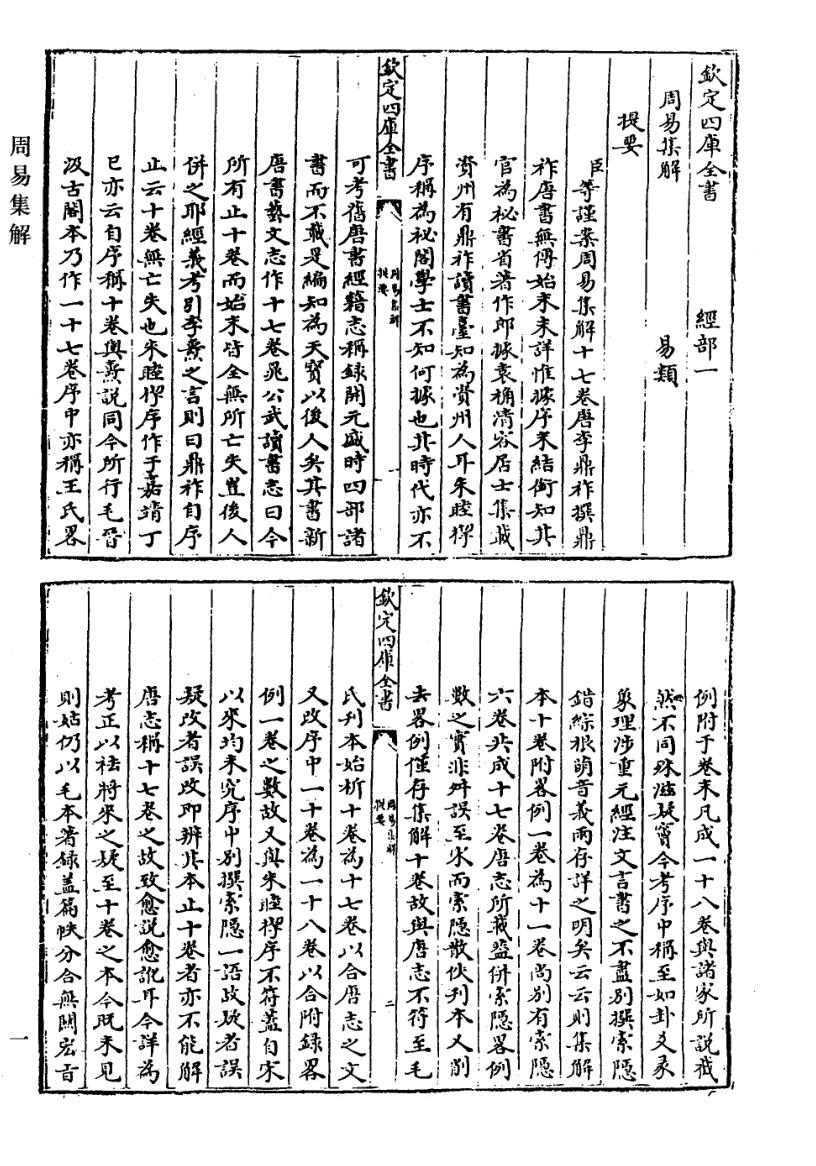 欽定四庫全書　經部一
周易集解　易類
提要
臣等謹案周易集解十七卷唐李鼎祚撰鼎
祚唐書無傳始末未詳惟據序末結銜知其
官為秘書省著作郎據袁桷清容居士集載
資州有鼎祚讀書臺知為資州人耳朱睦㮮
序稱為秘閣學士不知何據也其時代亦不
欽定四庫全書
周易集解
提要
一
可考舊唐書經籍志稱録開元盛時四部諸
書而不載是編知為天寶以後人矣其書新
唐書藝文志作十七卷晁公武讀書志曰今
所有止十卷而始末皆全無所亡失豈後人
併之耶經義考引李燾之言則曰鼎祚自序
止云十卷無亡失也朱睦㮮序作于嘉靖丁
巳亦云自序稱十卷與燾說同今所行毛晉
汲古閣本乃作一十七卷序中亦稱王氏畧
例附于卷末凡成一十八卷與諸家所說截
然不同殊滋疑竇今考序中稱至如卦爻彖
象理涉重元經注文言書之不盡别撰索隱
錯綜根萌音義兩存詳之明矣云云則集解
本十卷附畧例一卷為十一卷尚别有索隱
六卷共成十七卷唐志所載葢併索隱畧例
數之實非舛誤至宋而索隱散佚刊本又削
去畧例僅存集解十卷故與唐志不符至毛
欽定四庫全書
周易集解
提要
二
氏刊本始析十卷為十七卷以合唐志之文
又改序中一十卷為一十八卷以合附録畧
例一卷之數故又與朱睦㮮序不符葢自宋
以來均未究序中别撰索隱一語故疑者誤
疑改者誤改即辨其本止十卷者亦不能解
唐志稱十七卷之故致愈説愈訛耳今詳為
考正以祛將來之疑至十卷之本今既未見
則姑仍以毛本著録蓋篇帙分合無關宏旨
周易集解
一